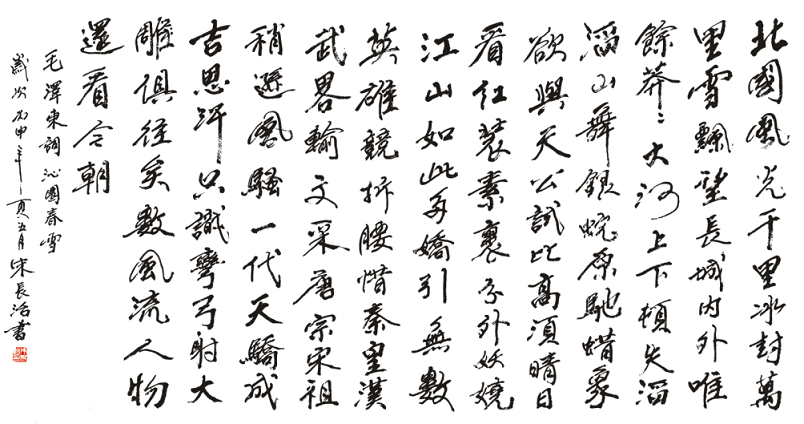 北國風光千里冰封萬
里雪飄望長城内外唯
餘莽〻大河上下頓失滔
滔山舞銀蛇原馳蜡象
欲與天公試比高須晴日
看红装素裹分外妖嬈
江山如此多嬌引無數
英雄競折腰惜秦皇漢
武畧輸文采唐宗宋祖
稍遜風騷一代天驕成
吉思汗只識彎弓射大
雕俱往矣數風流人物
還看今朝
毛澤東詞沁園春雪
歲次丙申年五月宋長浩書